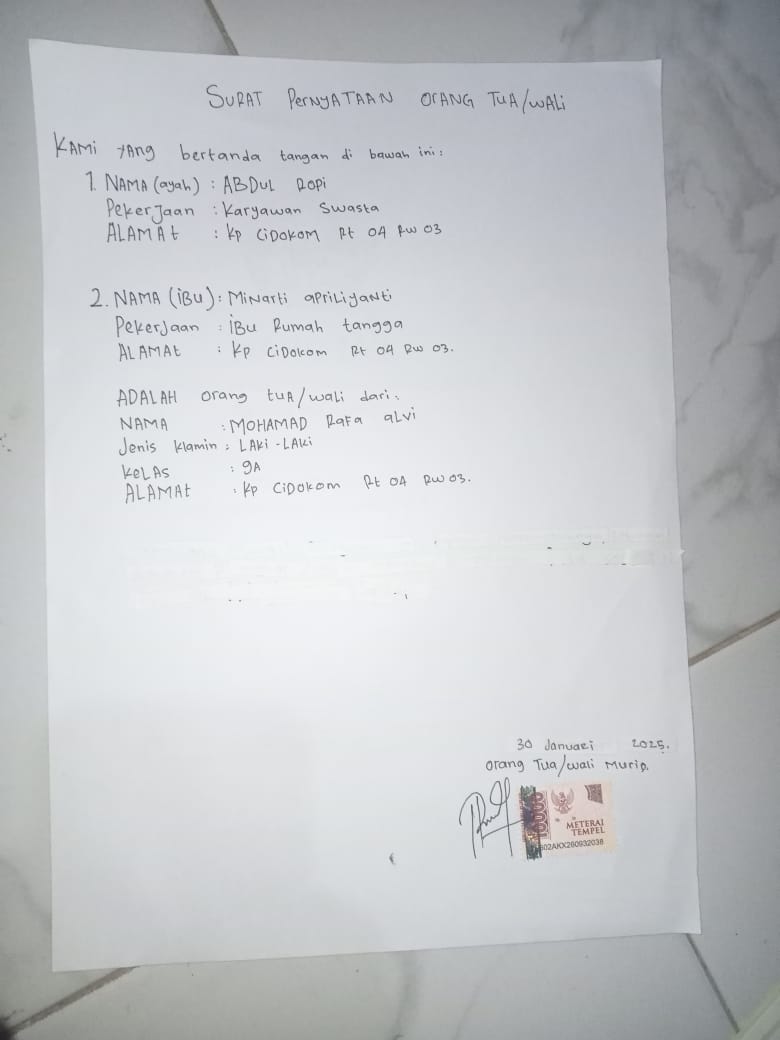 SURAT PERNYATAAN ORANG TUA/WALI
KAMi YAng bertanda tangan di bawah ini:
1. NAMA (ayah) : ABDUL Ropi
PekerJaan : Karyawan Swasta
ALAMAt : Kp CiDokom Rt 04 Rw 03
2. NAMA (iBu) : MiNarti apriliyanti
PekerJaan : iBu Rumah tangga
ALAMAt : Kp CiDokom Rt 04 Rw 03.
ADALAH orang tuA/wali dari:
NAMA : MOHAMAD RaFa alvi
Jenis klamin : LAki-LAki
KeLAS : 9A
ALAMAt : Kp CiDokom Rt 04 Rw 03.
30 Januari 2025.
orang Tua/wali Murid.
10000
METERAI
TEMPEL
02AKX260932038